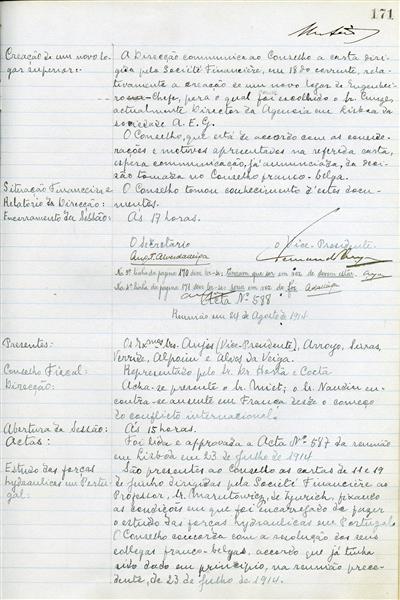 171
Creação de um novo lo-
gar superior:
A Direcção communica ao Conselho a carta diri-
gida pela Société Financière, em 18 do corrente, rela-
tivamente a creação de um novo logar de Engenheiro
Chefe, para o qual foi escolhido o Sr.
actualmente Director da Agencia em Lisboa da
sociedade A. E. G.
O Conselho, que está de accordo com as conside-
rações e motivos apresentados na referida carta,
espera communicação, já annunciada, da deci-
são tomada no Conselho franco-belga.
Situação Financeira e
Relatorio da Direcção:
O Conselho tomou conhecimento d'estes docu-
mentos.
Encerramento da Sessão:
Ás 17 horas.
O Secretario
O Vice-Presidente
Na linha da pagina 170 deve ler-se: em vez de
Na linha da pagina 171 deve ler-se: em vez de foi
Acta Nº 588
Reunião em 24 de Agosto de 1914
Presentes:
Os Exmos. Srs. Anjos (Vice-Presidente), Arroyo, Seixas,
Verride, Alpoim e Alves da Veiga.
Conselho Fiscal:
Representado pelo Sr. Dr. e Costa
Direcção:
Acha-se presente o Sr. o Sr. Naudin en-
contra-se ausente em França desde o começo
do conflicto internacional.
Abertura da Sessão:
Ás 15 horas.
Actas:
Foi lida e approvada a Acta Nº 587 da reunião
em Lisboa em 23 de Julho de 1914
Estudo das forças
hydraulicas em Portu-
gal:
São presentes ao Conselho as cartas de 11 e 19
de Junho dirigidas pela Société Financière ao
Professor, Sr. Narutowicz, de Zurich, fixando
as condições em que foi encarregado de fazer
o estudo das forças hydraulicas em Portugal.
O Conselho concorda com a resolução dos seus
collegas franco-belgas, accordo que já tinha
sido dado em principio, na reunião prece-
dente, de 23 de Julho de 1914.